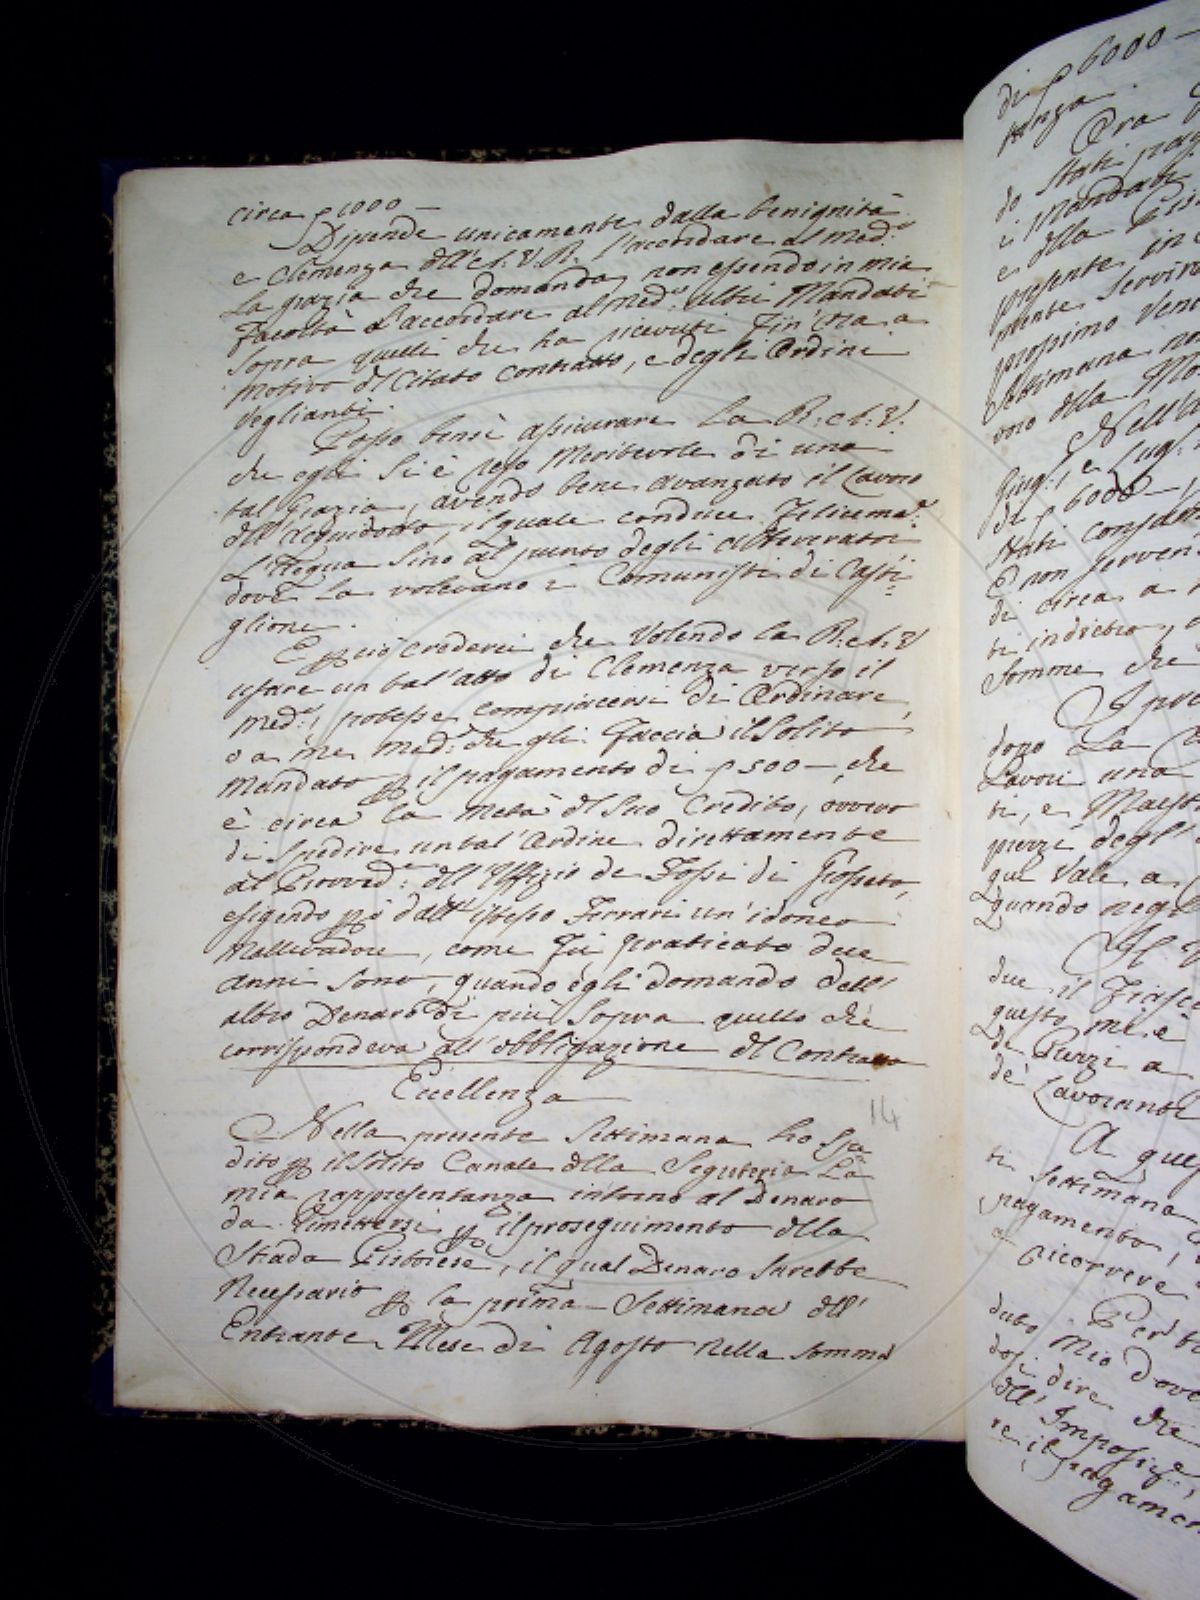 circa p 1000 —
Dipende unicamente dalla benignità
e Clemenza dll' A. V. R. l'accordare al Med.º
La grazia che domanda, non essendo in mia
Facoltà L'accordare al Med.º altri Mandati
sopra quelli che ha ricevuti fin' Ora a
motivo dl Citato Contratto, e degli Ordini
Veglianti.
Posso bensì assicurare La R. A. V.
che egli si è reso Meritevole di una
tal Grazia, avendo bene avanzato il Lavoro
dll' Acquidotto, il quale conduce Felicem.e
L'Acqua sino al punto degli Abbeveratoi
dove La volevano i Comunisti di Casti=
glione.
E p ciò crederei che Volendo la R. A. V.
usare un tal' atto di Clemenza verso il
Med.º, potesse compiacersi di Ordinare,
o a me med.º che gli Faccia il Solito
Mandato p il pagamento di p 500 —, che
è circa la Metà dl Suo Credito, ovvero
di Spedire un tal' Ordine direttamente
al Provved.e dll' Uffizio de Fossi di Grosseto,
esigendo p ò dall' istesso Ferrari un' idoneo
Mallevadore, come fù praticato due
anni sono, quando egli domandò dell'
altro Denaro di più Sopra quello che
corrispondeva all' obbligazione dl Contratto
Eccellenza
14
Nella presente Settimana ho Spe=
dito p il solito Canale dlla Segreteria La
mia rappresentanza intorno al Denaro
da Rimettersi p il proseguimento dlla
Strada Pistoiese, il qual Denaro Sarebbe
Necessario p la prima Settimana dll'
Entrante Mese di Agosto nella somma
di p 6000 —
tanza.
Ora
do Stati
i Mandati
e dlla
presente in
mente servire
prossimo
Settimana non
voro dlla
Nell'
Giug.º e Lug.
di p 6000 —,
Stati
E non
di circa a
ti indietro,
Somme che
I
dono La
Lavori una
ti, e
prezzi degl'
que Vale a
quando
Il
due il
questo mi è
de Prezzi a
de' Lavoranti
A
ti Settimana
pagamento,
a ricorrere
Per
duto Mio
dosi dire che
dll'
re il pagamen